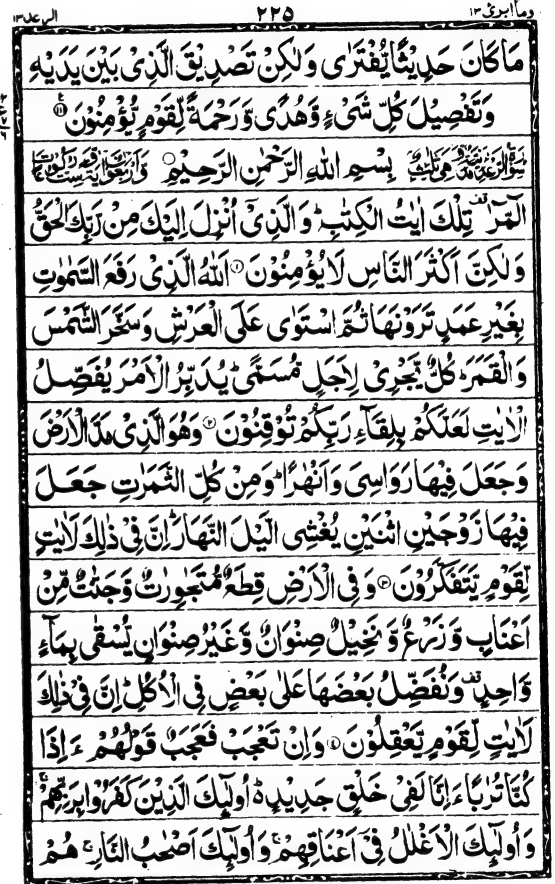 وما ابرئ ١٣ ٢٢٥ الرعد ١٣
مَا كَانَ حَدِيْثًا يُّفْتَرٰى وَلٰكِنْ تَصْدِيْقَ الَّذِىْ بَيْنَ يَدَيْهِ
وَتَفْصِيْلَ كُلِّ شَىْءٍ وَّهُدًى وَّرَحْمَةً لِّقَوْمٍ يُّؤْمِنُوْنَ ۝١١١
بِسْمِ اللهِ الرَّحْمٰنِ الرَّحِيْمِ ۝
الٓمّٓرٰ تِلْكَ اٰيٰتُ الْكِتٰبِ ؕ وَالَّذِىْۤ اُنْزِلَ اِلَيْكَ مِنْ رَّبِّكَ الْحَقُّ
وَلٰكِنَّ اَكْثَرَ النَّاسِ لَا يُؤْمِنُوْنَ ۝١ اَللهُ الَّذِىْ رَفَعَ السَّمٰوٰتِ
بِغَيْرِ عَمَدٍ تَرَوْنَهَا ثُمَّ اسْتَوٰى عَلَى الْعَرْشِ وَسَخَّرَ الشَّمْسَ
وَالْقَمَرَ ؕ كُلٌّ يَّجْرِىْ لِاَجَلٍ مُّسَمًّى ؕ يُدَبِّرُ الْاَمْرَ يُفَصِّلُ
الْاٰيٰتِ لَعَلَّكُمْ بِلِقَآءِ رَبِّكُمْ تُوْقِنُوْنَ ۝٢ وَهُوَ الَّذِىْ مَدَّ الْاَرْضَ
وَجَعَلَ فِيْهَا رَوَاسِىَ وَاَنْهٰرًا ؕ وَمِنْ كُلِّ الثَّمَرٰتِ جَعَلَ
فِيْهَا زَوْجَيْنِ اثْنَيْنِ يُغْشِى الَّيْلَ النَّهَارَ ؕ اِنَّ فِىْ ذٰلِكَ لَاٰيٰتٍ
لِّقَوْمٍ يَّتَفَكَّرُوْنَ ۝٣ وَفِى الْاَرْضِ قِطَعٌ مُّتَجٰوِرٰتٌ وَّجَنّٰتٌ مِّنْ
اَعْنَابٍ وَّزَرْعٌ وَّنَخِيْلٌ صِنْوَانٌ وَّغَيْرُ صِنْوَانٍ يُّسْقٰى بِمَآءٍ
وَّاحِدٍ وَنُفَضِّلُ بَعْضَهَا عَلٰى بَعْضٍ فِى الْاُكُلِ ؕ اِنَّ فِىْ ذٰلِكَ
لَاٰيٰتٍ لِّقَوْمٍ يَّعْقِلُوْنَ ۝٤ وَاِنْ تَعْجَبْ فَعَجَبٌ قَوْلُهُمْ ءَاِذَا
كُنَّا تُرٰبًا ءَاِنَّا لَفِىْ خَلْقٍ جَدِيْدٍ ؕ اُولٰٓئِكَ الَّذِيْنَ كَفَرُوْا بِرَبِّهِمْ ۚ
وَاُولٰٓئِكَ الْاَغْلٰلُ فِىْۤ اَعْنَاقِهِمْ ۚ وَاُولٰٓئِكَ اَصْحٰبُ النَّارِ ۚ هُمْ